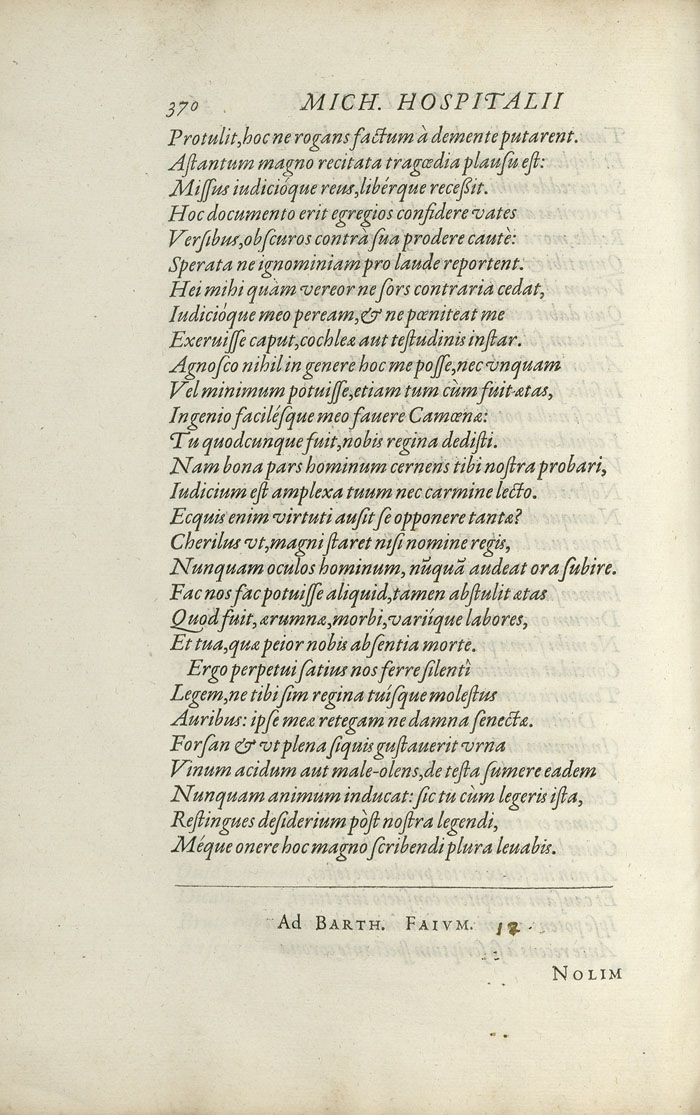 370 MICH. HOSPITALII
Protulit, hoc ne rogans factum à demente putarent.
Astantum magno recitata tragœdia plausu est:
Missus iudicióque reus, libérque recessit.
Hoc documento erit egregios confidere vates
Versibus, obscuros contrà sua prodere cautè:
Sperata ne ignominiam pro laude reportent.
Hei mihi quàm vereor ne sors contraria cedat,
Iudicióque meo peream, & ne pœniteat me
Exeruisse caput, cochleæ aut testudinis instar.
Agnosco nihil in genere hoc me posse, nec vnquam
Vel minimum potuisse, etiam tum cùm fuit ætas,
Ingenio facilésque meo fauere Camœnæ:
Tu quodcunque fuit, nobis regina dedisti.
Nam bona pars hominum cernens tibi nostra probari,
Iudicium est amplexa tuum nec carmine lecto.
Ecquis enim virtuti ausit se opponere tantæ?
Cherilus vt, magni staret nisi nomine regis,
Nunquam oculos hominum, nũquã audeat ora subire.
Fac nos fac potuisse aliquid, tamen abstulit ætas
Quod fuit, ærumnæ, morbi, variíque labores,
Et tua, quæ peior nobis absentia morte.
Ergo perpetui satius nos ferre silentî
Legem, ne tibi sim regina tuísque molestus
Auribus: ipse meæ retegam ne damna senectæ.
Forsan & vt plena siquis gustauerit vrna
Vinum acidum aut male-olens, de testa sumere eadem
Nunquam animum inducat: sic tu cùm legeris ista,
Restingues desiderium pòst nostra legendi,
Méque onere hoc magno scribendi plura leuabis.
Ad BARTH. FAIVM. 12
NOLIM